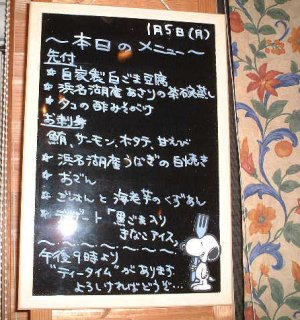 1月5日(月)
～本日のメニュー～
先付
☆自家製白ごま豆腐
☆浜名湖産あさりの茶碗蒸し
☆タコの酢みそがけ
お刺身
鮪、サーモン、ホタテ、甘えび
☆浜名湖産うなぎの白焼き
☆おでん
と海老芋のくずあん
デザート「黒ごま入り
きなこアイス」
～～～～～～～～
午後9時より
"ティータイム"があります
よろしければどうぞ…